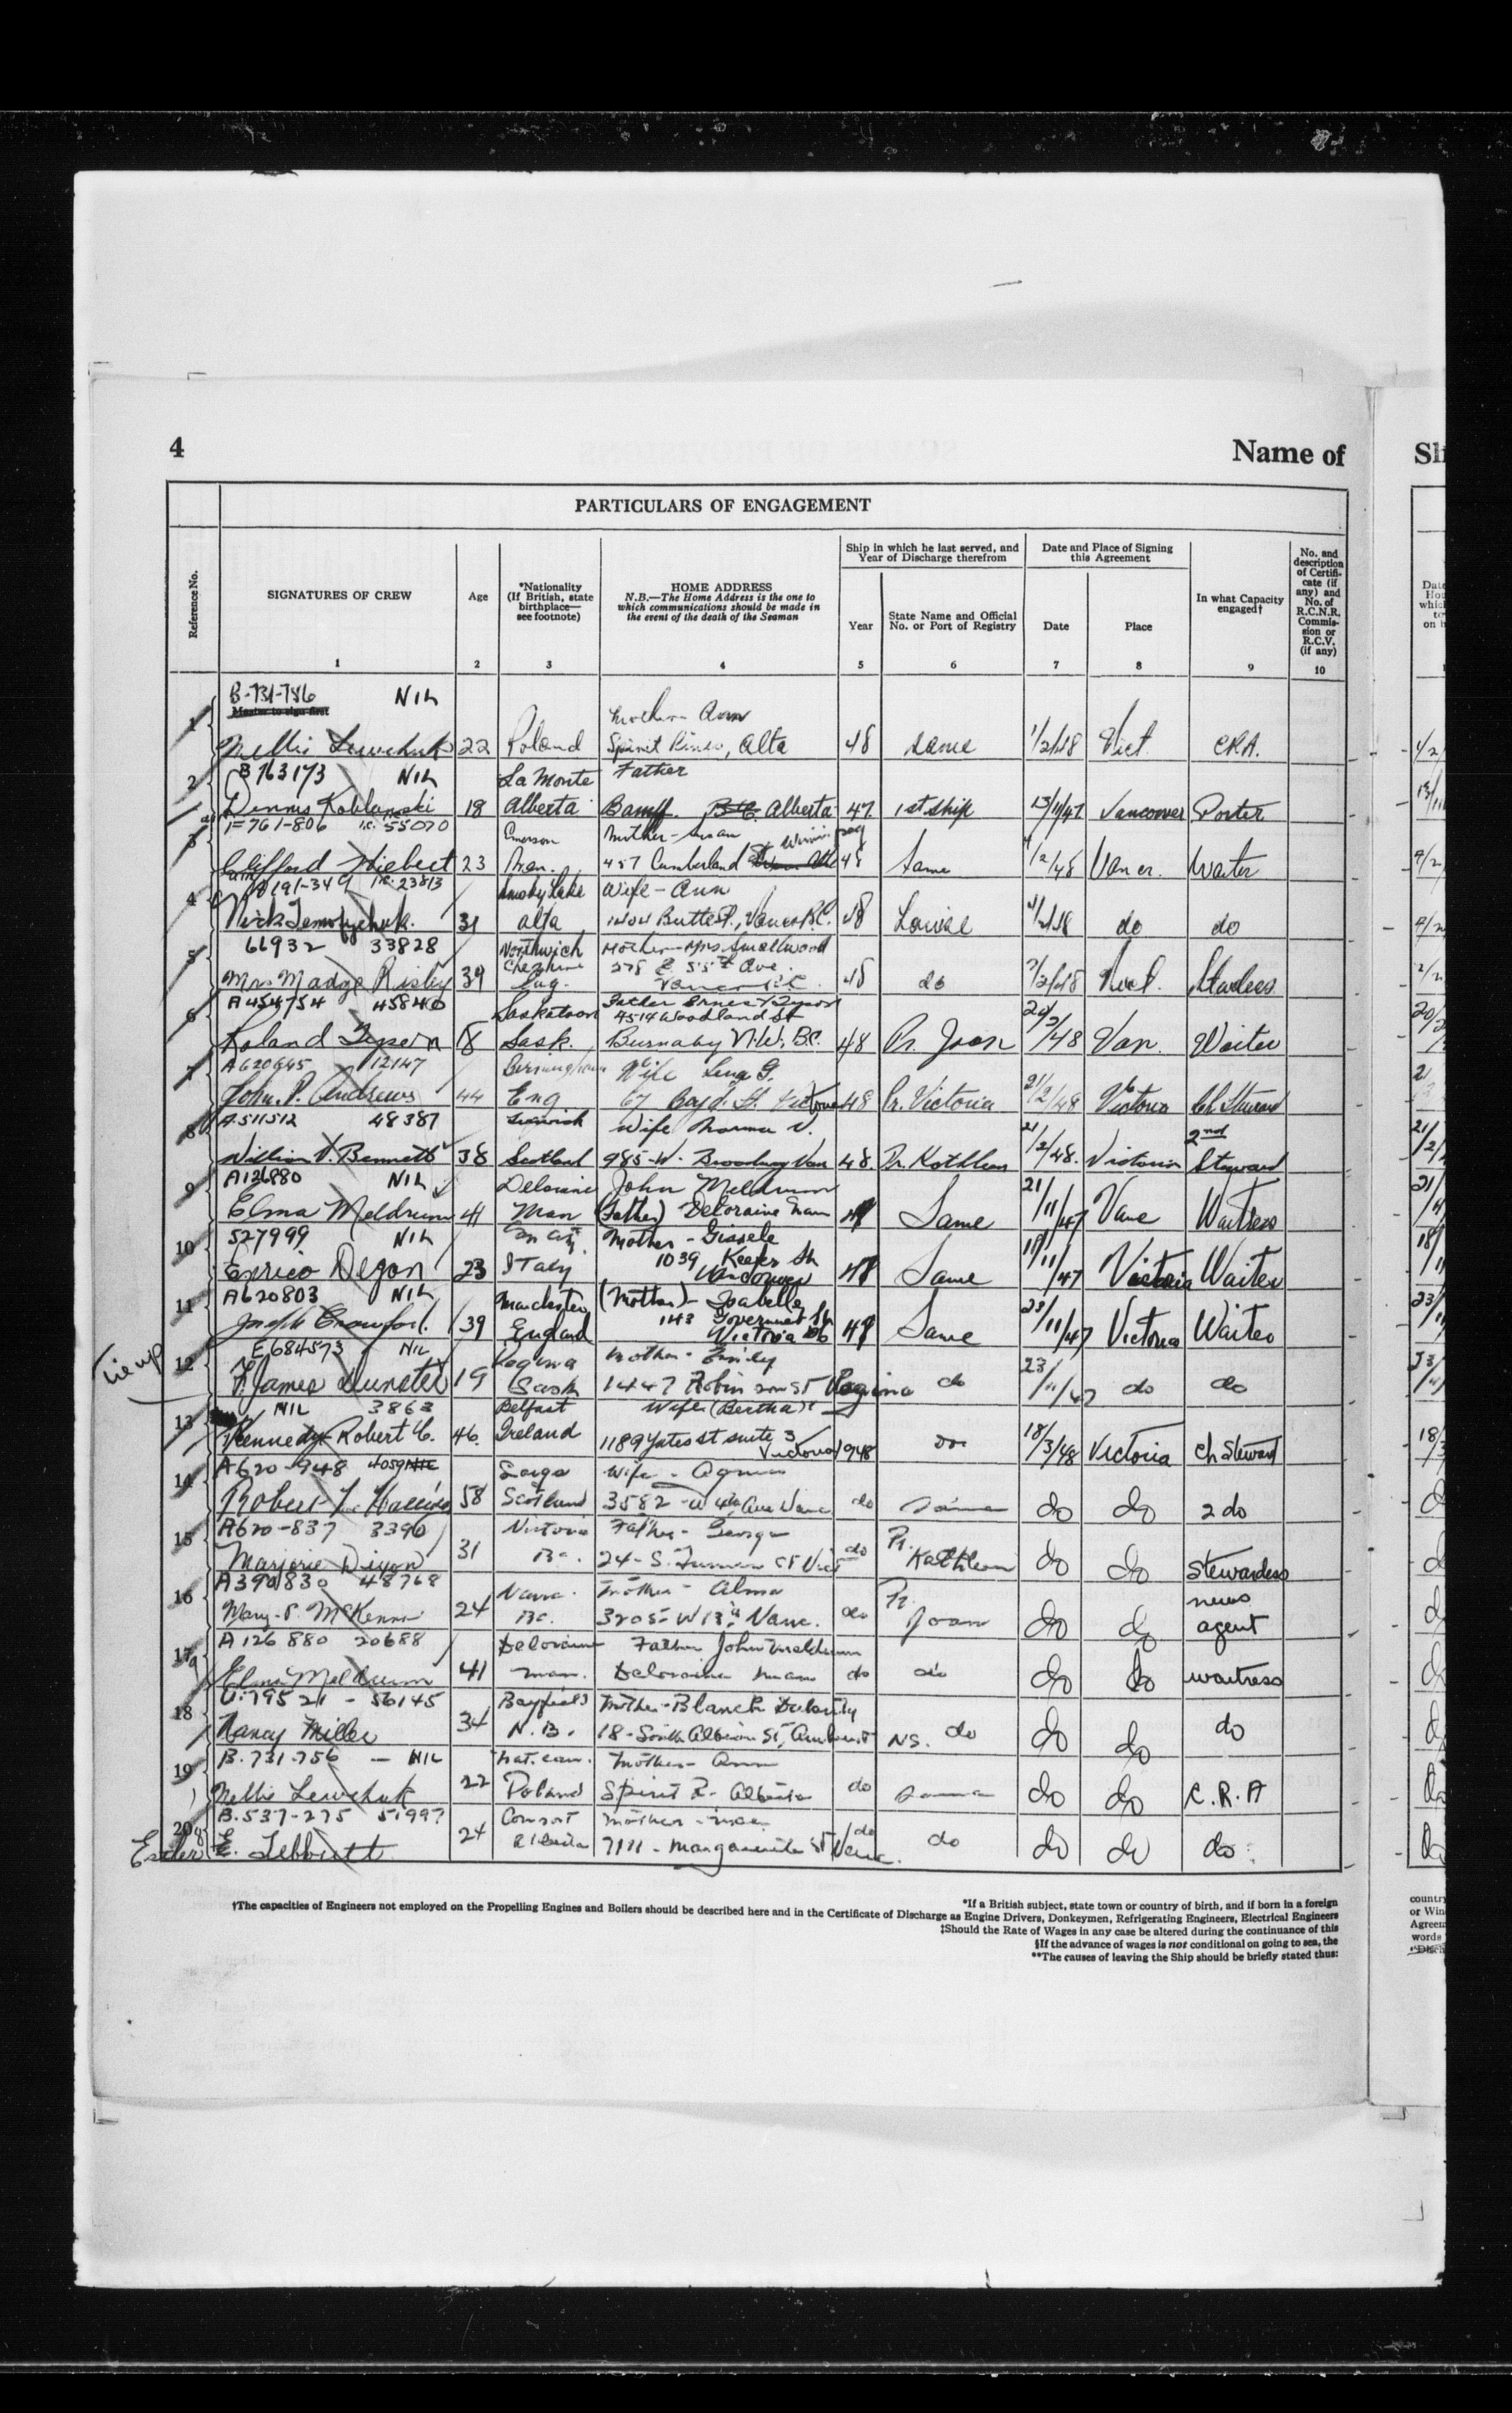 4
Name of
PARTICULARS OF ENGAGEMENT
Reference No.
SIGNATURES OF CREW
Age
*Nationality
(If British, state
birthplace—
see footnote)
HOME ADDRESS
N.B.—The Home Address is the one to
which communications should be made in
the event of the death of the Seaman
Ship in which he last served, and
Year of Discharge therefrom
Year
State Name and Official
No. or Port of Registry
Date and Place of Signing
this Agreement
Date
Place
In what Capacity
engaged†
No. and
description
of Certifi-
cate (if
any) and
No. of
R.C.N.R.
Commis-
sion or
R.C.V.
(if any)
1 2 3 4 5 6 7 8 9 10
B-731-786 NIL
Master to sign first
Mother - Ann
1 Nellie Lewchuk 22 Poland Spirit River, Alta 48 same 1/2/48 Vict C.R.A.
B 763173 NIL La Monte Father
2 Dennis 18 Alberta Banff B.C. Alberta 47 1st ship 13/11/47 Vancouver Porter
F-761-806 I.C. 55070 Emerson Mother - Susan Winnipeg
3 Clifford Hiebert 23 Man. 457 Cumberland 48 Same /2/48 Vancr. Waiter
191-349 I.C. 23813 Smoky Lake Wife - Ann
4 Nick 31 Alta 1404 Bute St., Vancr B.C. 48 Louise do do
66932 33828 Northwich Mother - Mrs Smallwood
Cheshire 278 E 55th Ave.
5 Mrs. Madge Risley 39 Eng. Vancr B.C. 48 do /2/48 Vict. Stewardess
A 454754 45840 Saskatoon Father Ernest Tyson
4514 Woodland St
6 Roland Tyson 18 Sask. Burnaby N.W. B.C. 48 Pr. Joan 20/2/48 Van. Waiter
A620645 12147 Birmingham Wife Lena G.
7 John P. Andrews 44 Eng 67 Boyd St. Victoria 48 Pr. Victoria 21/2/48 Victoria Ch. Steward
A511512 48387 Wife Norma V.
8 William V. Bennett 38 Scotland 985 - W. Broadway Van 48 Pr. Kathleen 21/2/48. Victoria 2nd Steward
A126880 NIL Deloraine John Meldrum
9 Elma Meldrum 41 Man (Father) Deloraine Man Same 21/11/47 Vanc Waitress
527999 NIL Mother - Gissele
1039 Keefer St
10 Enrico Degan 23 Italy Vancouver Same 18/11/47 Victoria Waiter
A620803 NIL Manchester (Mother) - Isabelle
143 Government St
11 Crawford 39 England Victoria BC Same 23/11/47 Victoria Waiter
Tie up
E684573 NIL Regina Mother - Emily
12 F. James Dunster 19 Sask 1447 Robinson St Regina do 23/11/47 do do
NIL 3863 Belfast Wife (Bertha)
13 Kennedy Robert C. 46. Ireland 1189 Yates st suite 3 Victoria 1948 do 18/3/48 Victoria Ch Steward
A620-948 4059 NIL Largs Wife - Agnes
14 Robert 58 Scotland 3582 - W 4th Ave Vanc do Same do do 2 do
A620-837 3390 Victoria Father - George
15 Marjorie Dixon 31 BC. 24 - S. Turner St Vict do Pr. Kathleen do do Stewardess
A390830 48768 Vanc. Mother - Alma news
16 Mary P. McKenna 24 BC. 3205 - W 13th Vanc. do Pr. Joan do do agent
A 126 880 20688 Deloraine Father John Meldrum
17 Elma Meldrum 41 Man. Deloraine Man do do do do waitress
U.79521 - 56145 Bayfield Mother - Blanch
18 Nancy Miller 34 N.B. 18 - South Albion St, Amherst NS. do do do do
B. 731.756 - NIL Nat. can. Mother - Ann
19 Nellie Lewchuk 22 Poland Spirit R - Alberta do same do do C.R.A
B.537-275 51997 Consort Mother -
20 E. Tebbutt 24 Alberta 7111 - Marguerite St Vanc. do do do do do
†The capacities of Engineers not employed on the Propelling Engines and Boilers should be described here and in the Certificate of Discharge as Engine Drivers, Donkeymen, Refrigerating Engineers, Electrical Engineers
*If a British subject, state town or country of birth, and if born in a foreign
‡Should the Rate of Wages in any case be altered during the continuance of this
§If the advance of wages is not conditional on going to sea, the
**The causes of leaving the Ship should be briefly stated thus: